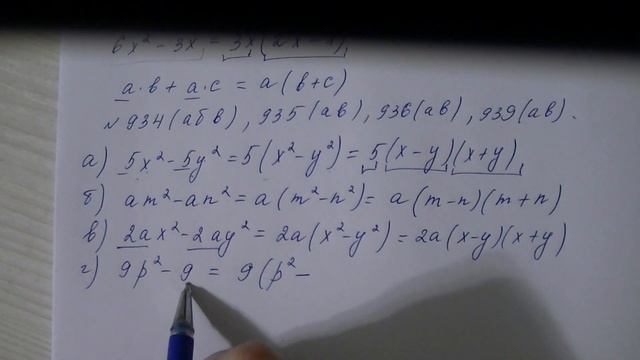 6x² - 3x = 3x(2x - 
a·b + a·c = a(b+c)
№934(абв), 935(ав), 936(ав), 939(ав).
а) 5x² - 5y² = 5(x² - y²) = 5(x-y)(x+y)
б) am² - an² = a(m² - n²) = a(m-n)(m+n)
в) 2ax² - 2ay² = 2a(x² - y²) = 2a(x-y)(x+y)
г) 9p² - 9 = 9(p² -